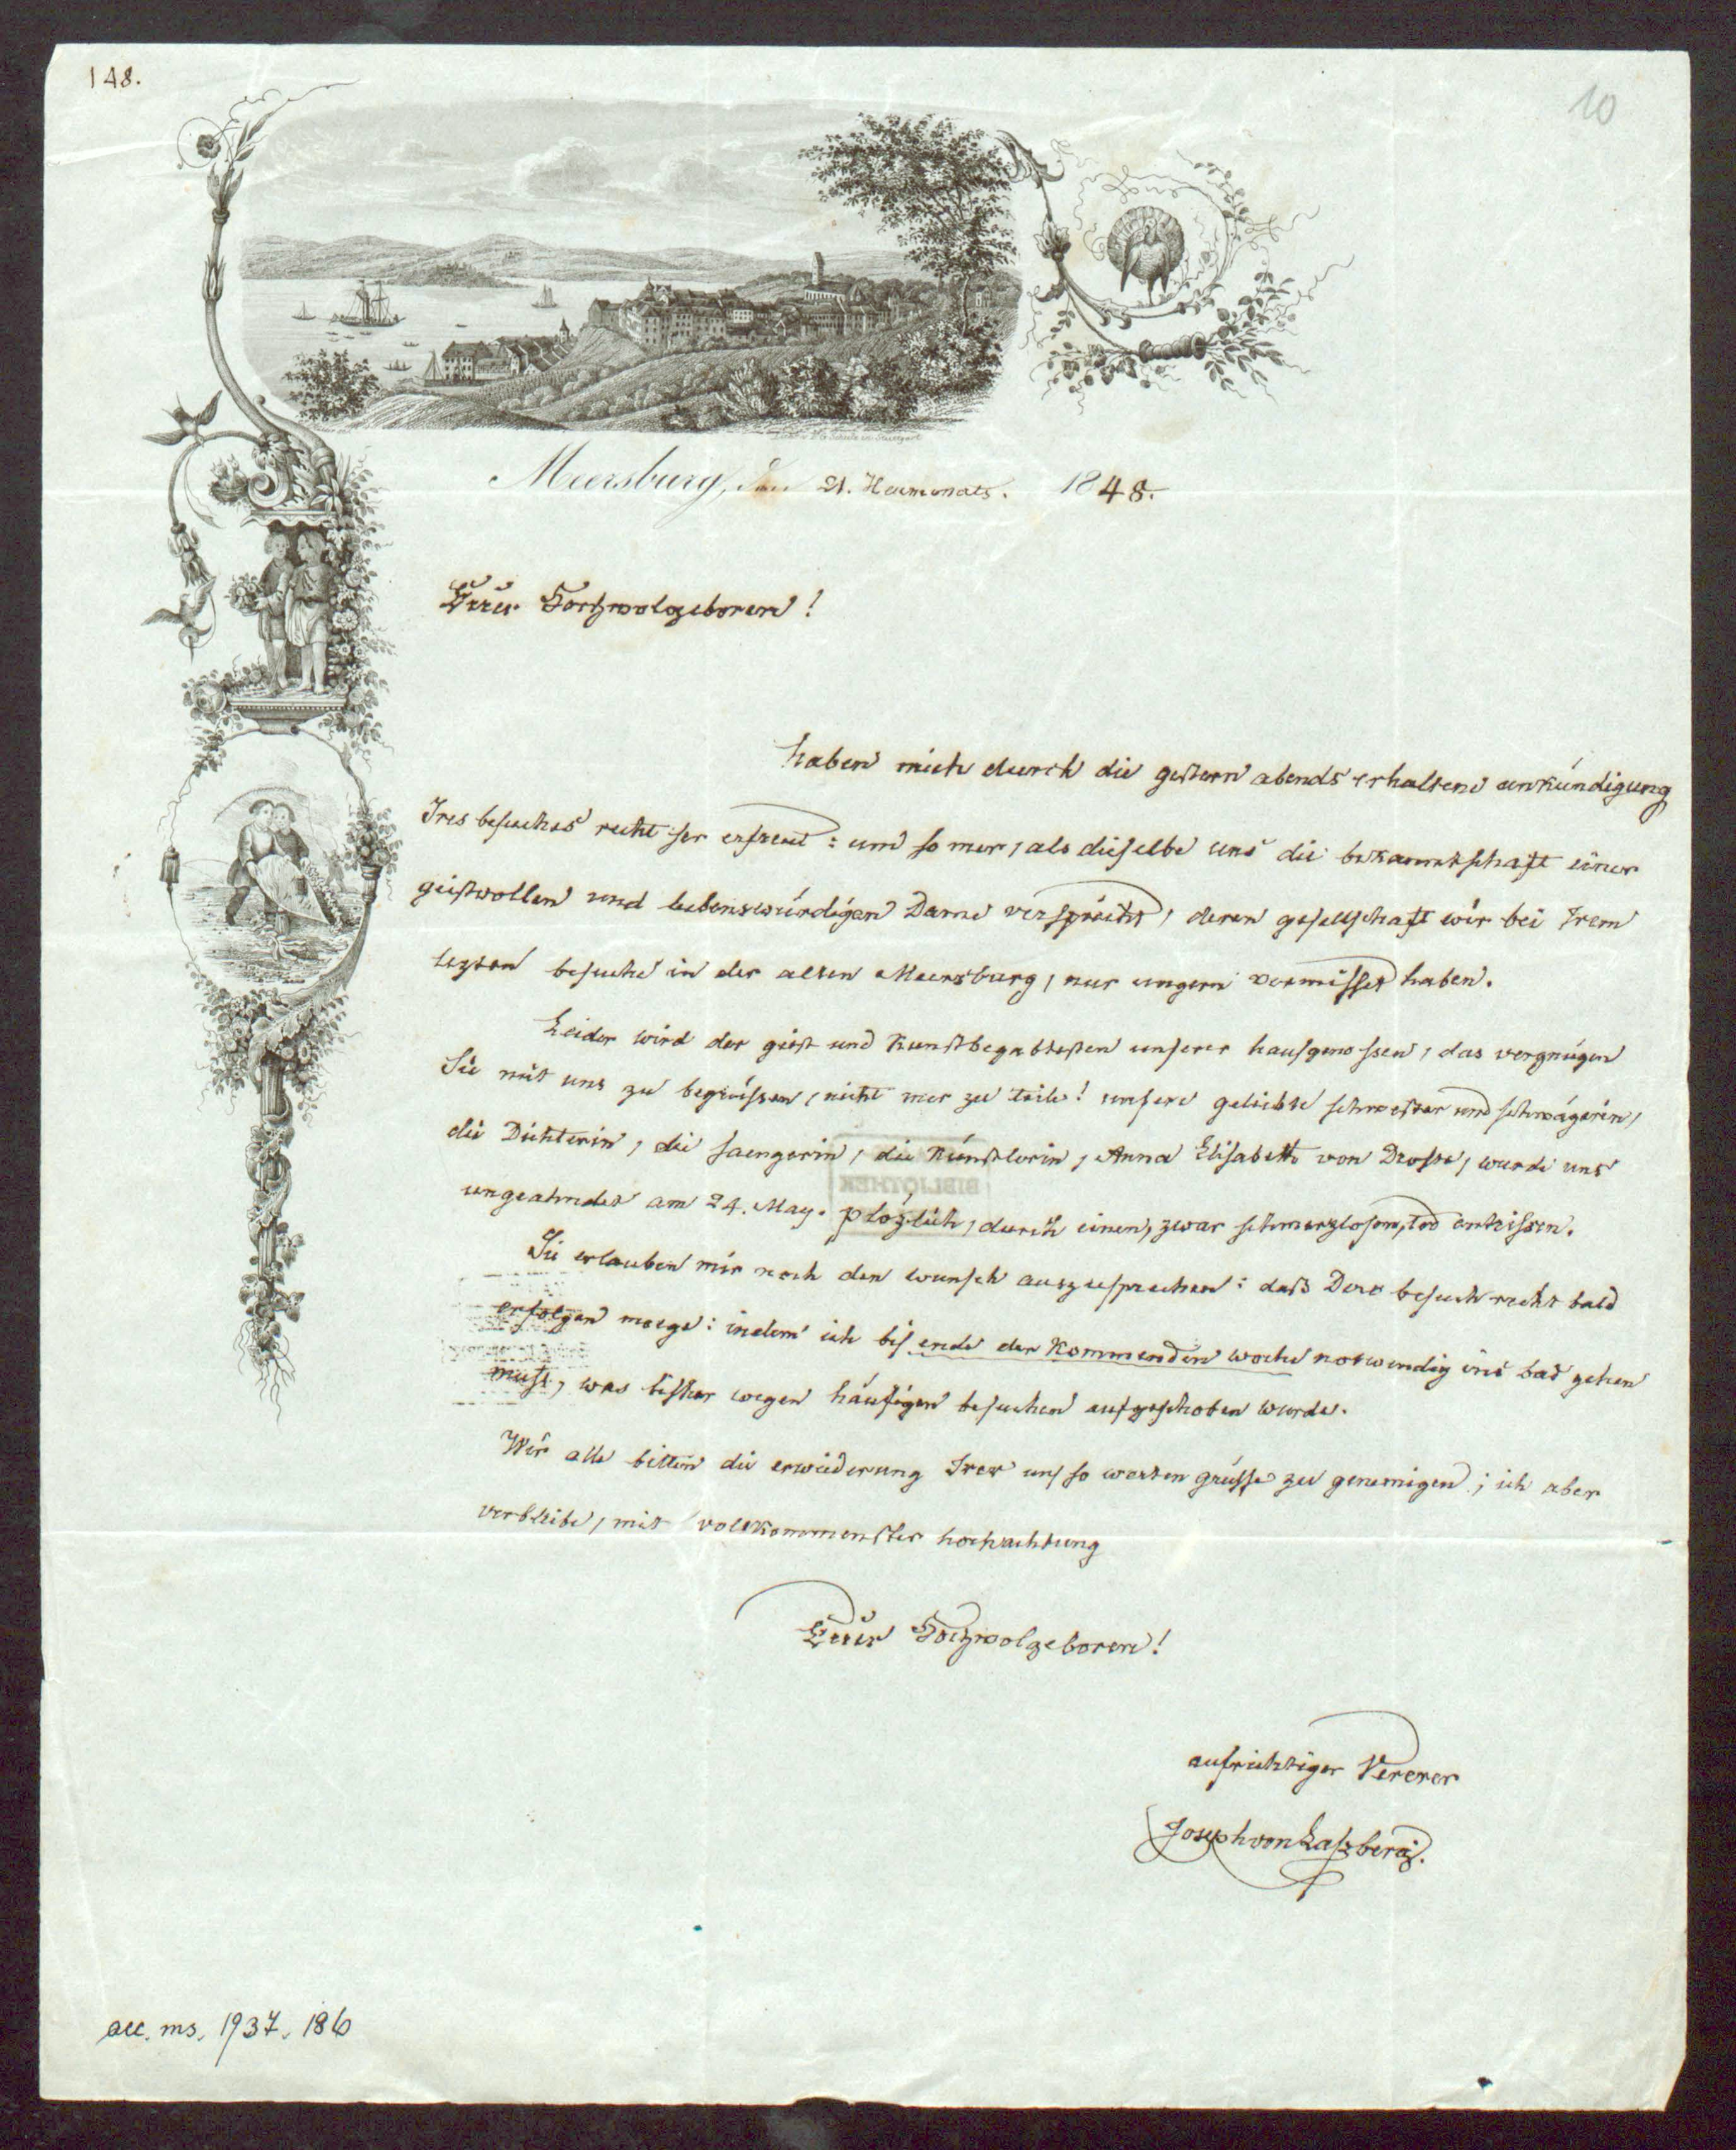 148.
10
Meersburg, den 21. Heumonats. 1848.
Euer Hochwolgeboren!
haben mich durch die gestern abends erhaltene ankündigung
Ires besuches recht ser erfreut: um so mer, als dieselbe uns die bekanntschaft einer
geistvollen und liebenswürdigen Dame verspricht, deren gesellschaft wir bei Irem
lezten besuche in der alten Meersburg, nur ungern vermisset haben.
Leider wird der geist und kunstbegabtesten unserer hausgenossen, das vergnügen
Sie mit uns zu begrüssen, nicht mer zu teile! unsere geliebte schwester und schwägerin,
die Dichterin, die saengerin, die künstlerin, Anna Elisabeth von Droste, wurde uns
ungeahndet am 24. May. plözlich, durch einen, zwar schmerzlosen, tod entrissen.
Sie erlauben mir noch den wunsch auszusprechen: daß Dero besuch recht bald
erfolgen moege: indem ich bis ende der kommenden woche notwendig ins bad gehen
muss, was bisher wegen häufigen besuchen aufgeschoben wurde.
Wir alle bitten die erwiederung Irer uns so werten grüsse zu genemigen; ich aber
verbleibe, mit vollkommenster hochachtung
Euer Hochwolgeboren!
aufrichtiger Vererer
Joseph von Laszberg.
BIBLIOTHEK
acc. ms. 1937. 186